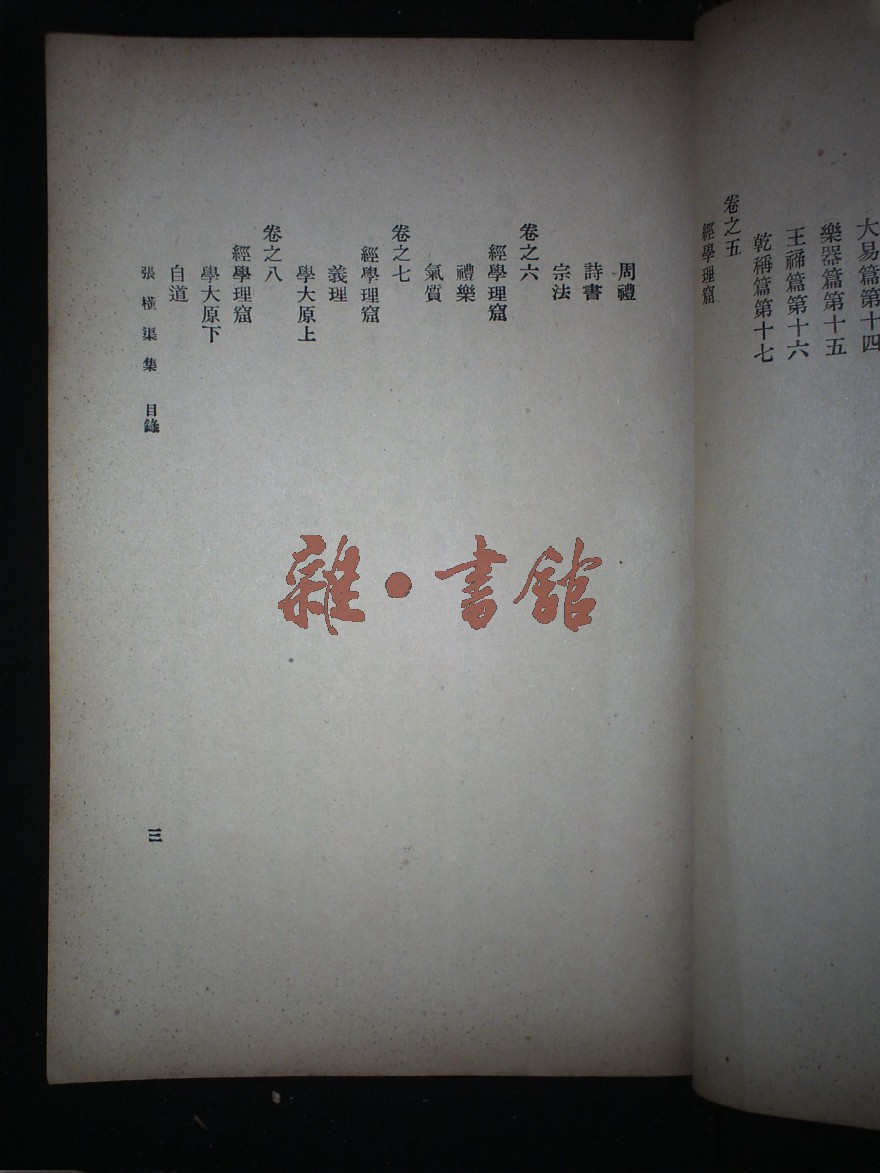 大易篇第十四
樂器篇第十五
王禘篇第十六
乾稱篇第十七
卷之五
經學理窟
周禮
詩書
宗法
卷之六
經學理窟
禮樂
氣質
卷之七
經學理窟
義理
學大原上
卷之八
經學理窟
學大原下
自道
張橫渠集 目錄
三
雜·書館